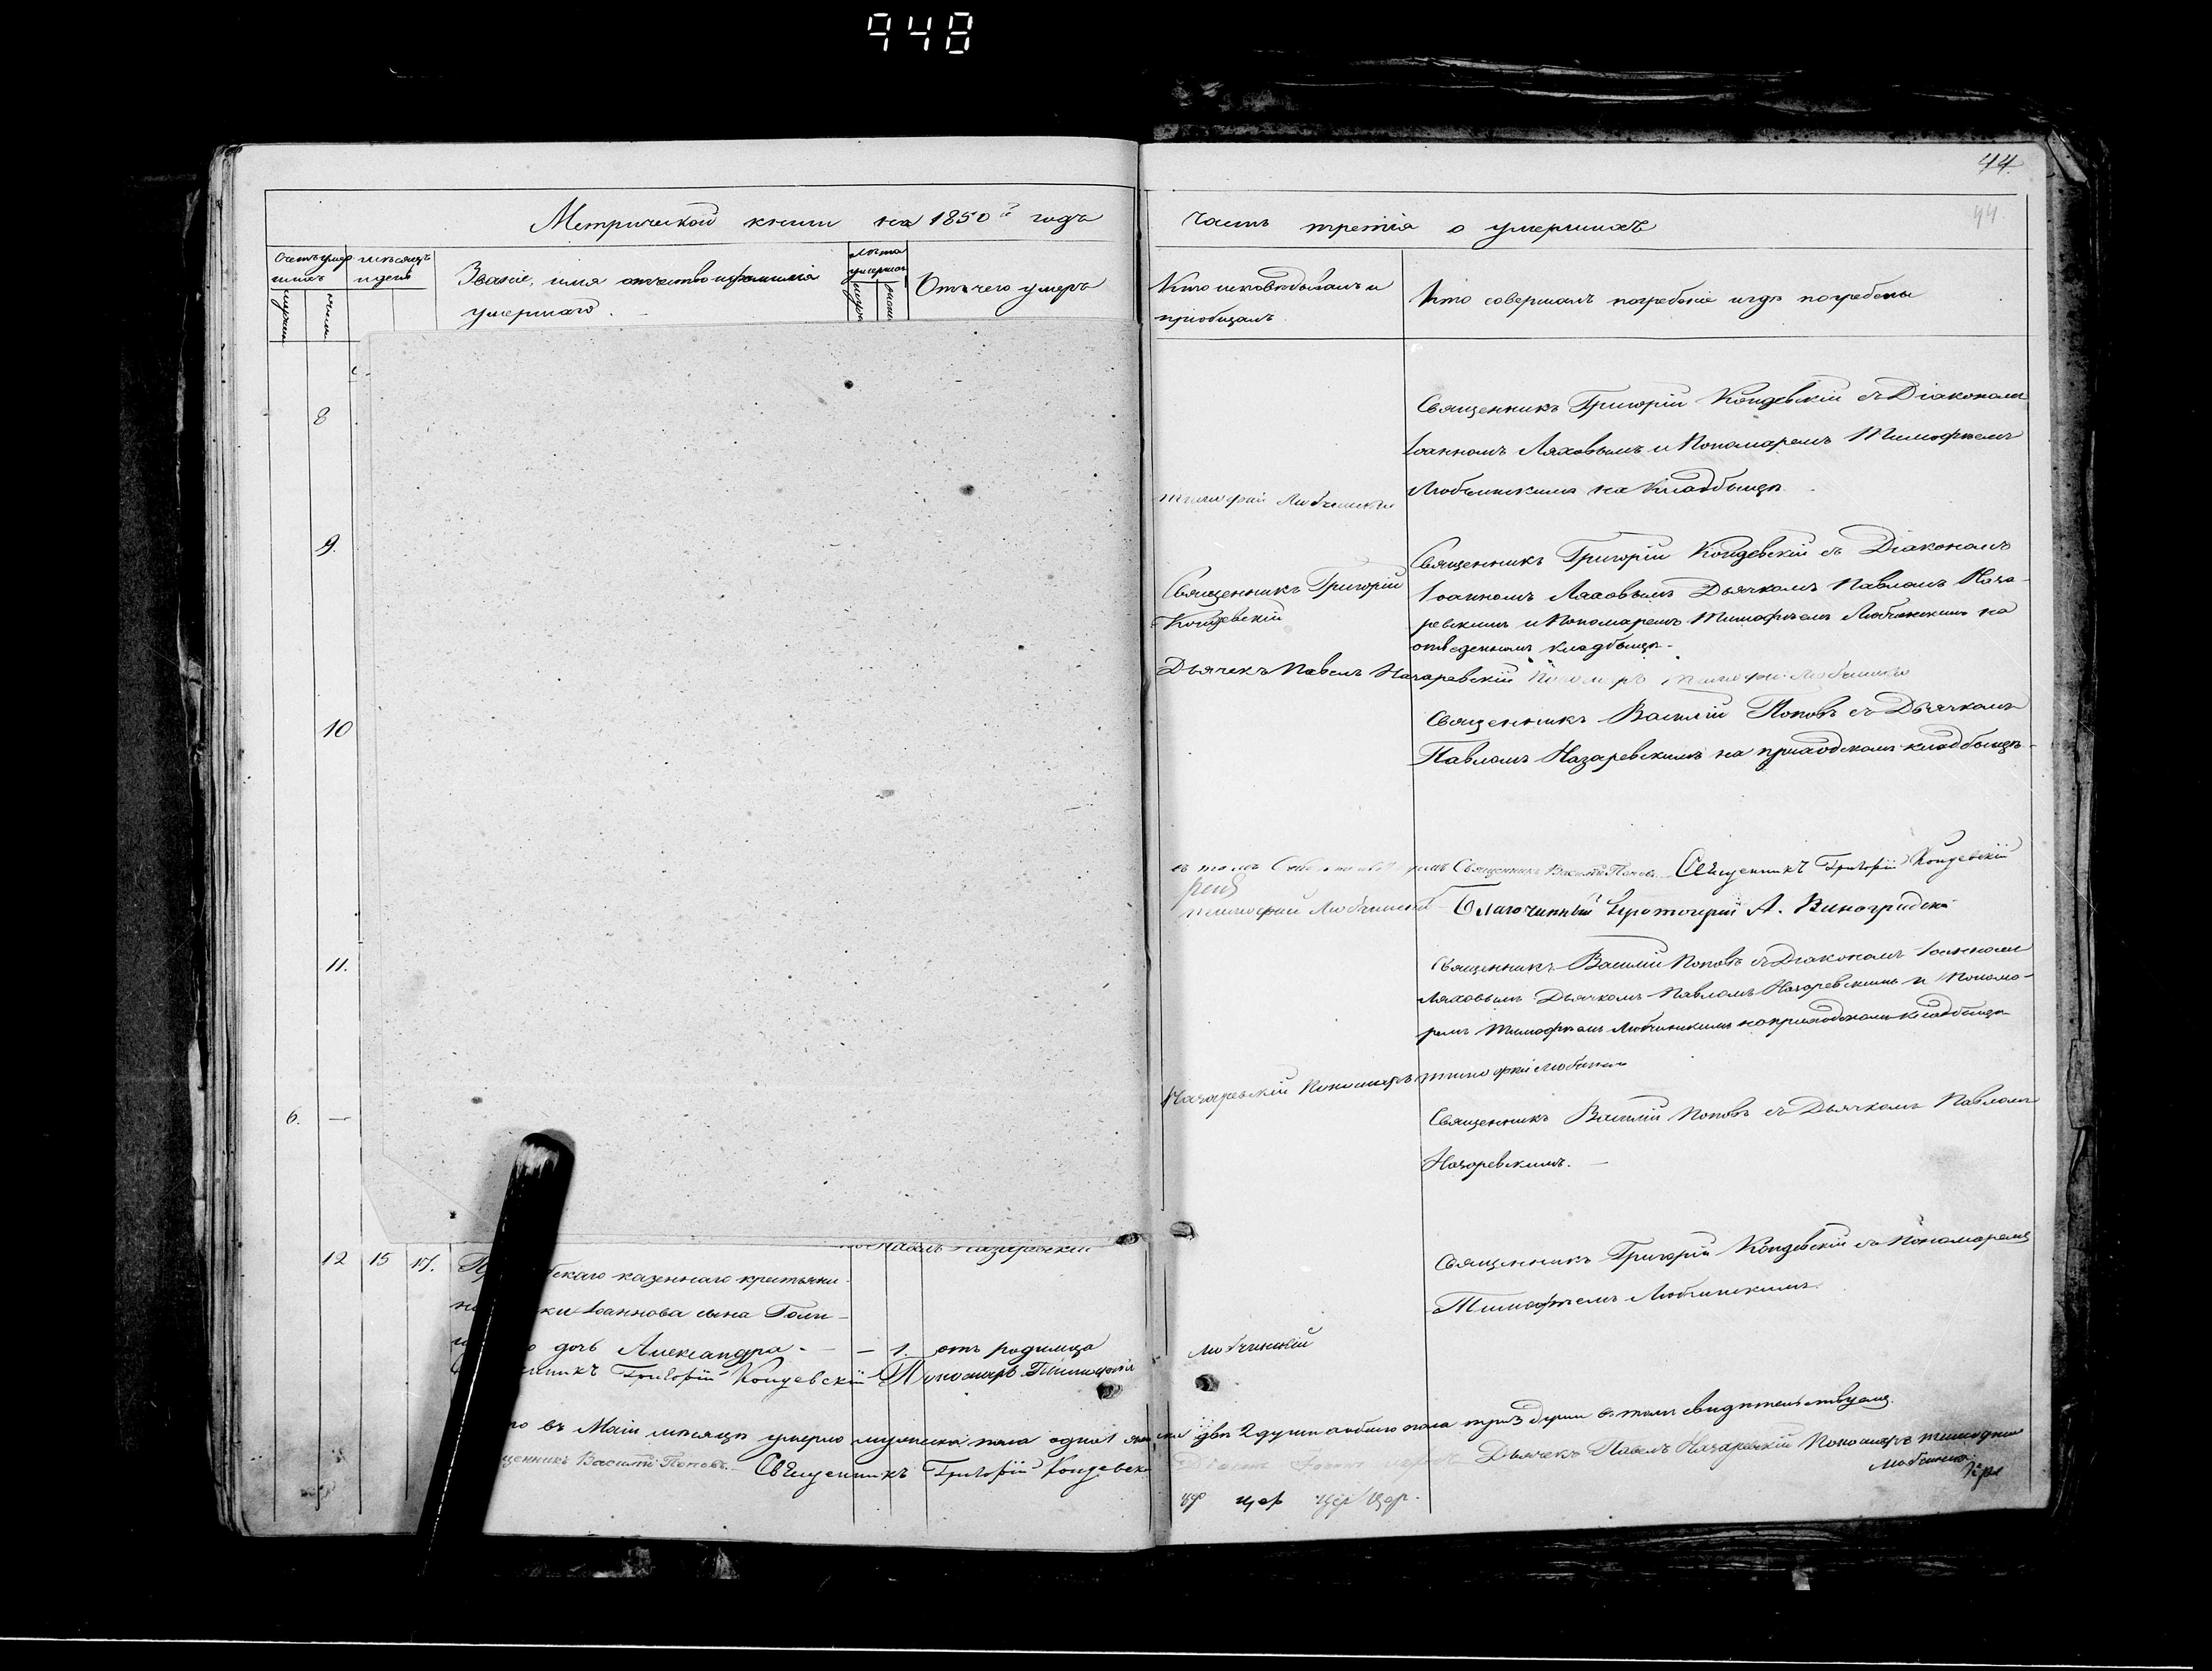 948
44.
44.
Метрической книги на 1850й годъ
часть третія о умершихъ
Счетъ умер
шихъ
мѣсяцъ
и день
Званіе, имя отчество и фамилія
умершаго.
лѣта
умершаго
Отъ чего умеръ
Кто исповѣдывалъ и
пріобщалъ
Кто совершалъ погребеніе и гдѣ погребены
8
Священникъ Григорій Кондевскій съ Діакономъ
Іоанномъ Ляховымъ и Пономаремъ Тимофѣемъ
Любчинскимъ на кладбищѣ.
Тимофей Любчинскій
9.
Священникъ Григорій
Кондевскій
Священникъ Григорій Кондевскій съ Діакономъ
Іоанномъ Ляховымъ Дьячкомъ Павломъ Наза-
ревскимъ и Пономаремъ Тимофѣемъ Любчинскимъ на
отведенномъ кладбищѣ.
Дьячекъ Павелъ Назаревскій Пономарь Тимофей Любчинскій
10
Священникъ Василій Поповъ съ Дьячкомъ
Павломъ Назаревскимъ на приходскомъ кладбищѣ.
въ томъ Священникъ Василій Поповъ. Священникъ Григорій Кондевскій
Тимофей Любчинскій Благочинный Протоіерей А. Виноградскій
11.
Священникъ Василій Поповъ съ Діакономъ Іоанномъ
Ляховымъ Дьячкомъ Павломъ Назаревскимъ и Понома-
ремъ Тимофѣемъ Любчинскимъ на приходскомъ кладбищѣ
Назаревскій Пономарь Тимофей Любчинскій
6. —
Священникъ Василій Поповъ съ Дьячкомъ Павломъ
Назаревскимъ. —
Павелъ Назаревскій
12 15 17.
скаго казеннаго крестьяни-
ки Іоаннова сына Голи-
дочь Александра. — — 1. отъ родимца
Священникъ Григорій Кондевскій съ Пономаремъ
Тимофѣемъ Любчинскимъ.
нникъ Григорій Кондевскій Пономарь Тимофей Любчинскій
го въ Маіи мѣсяцѣ умерло мужеска пола одна 1 женска двѣ 2 души обоего пола три 3 души въ томъ свидѣтельствуемъ
щенникъ Василій Поповъ. Священникъ Григорій Кондевскій
Дьячекъ Павелъ Назаревскій Пономарь Тимофей
Любчинскій